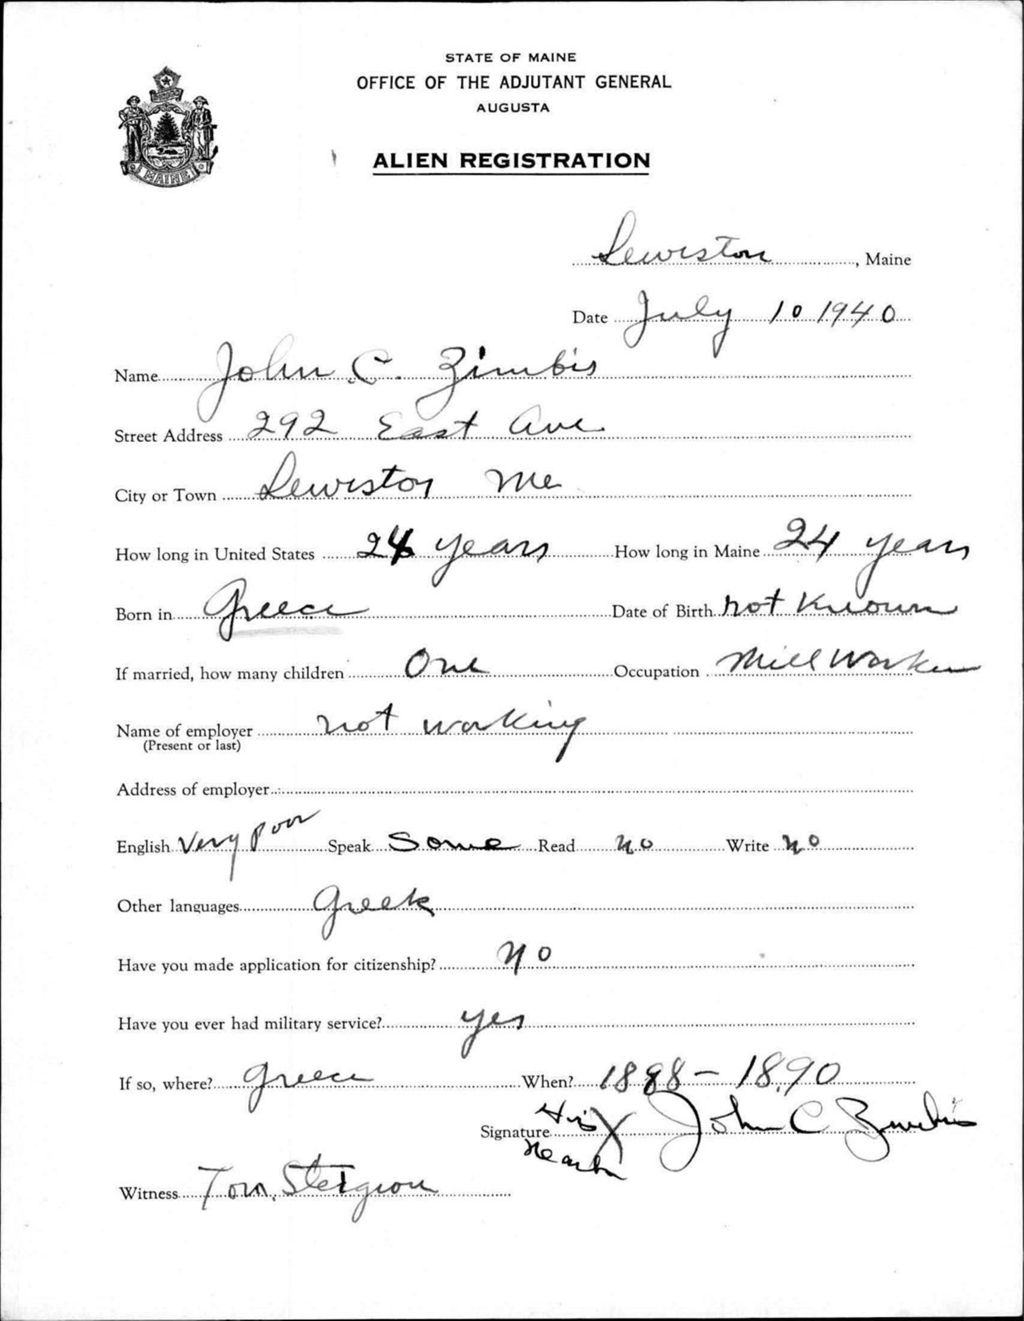 STATE OF MAINE
OFFICE OF THE ADJUTANT GENERAL
AUGUSTA
ALIEN REGISTRATION
MAINE
Lewiston, Maine
Date July 10 1940
Name John C. Zimbis
Street Address 292 East Ave
City or Town Lewiston Me
How long in United States 24 years How long in Maine 24 years
Born in Greece Date of Birth not Known
If married, how many children One Occupation Mill Worker
Name of employer not working
(Present or last)
Address of employer
English Very poor Speak Some Read no Write no
Other languages Greek
Have you made application for citizenship? No
Have you ever had military service? yes
If so, where? Greece When? 1888 - 1890
Signature His X Mark John C Zimbis
Witness Tom